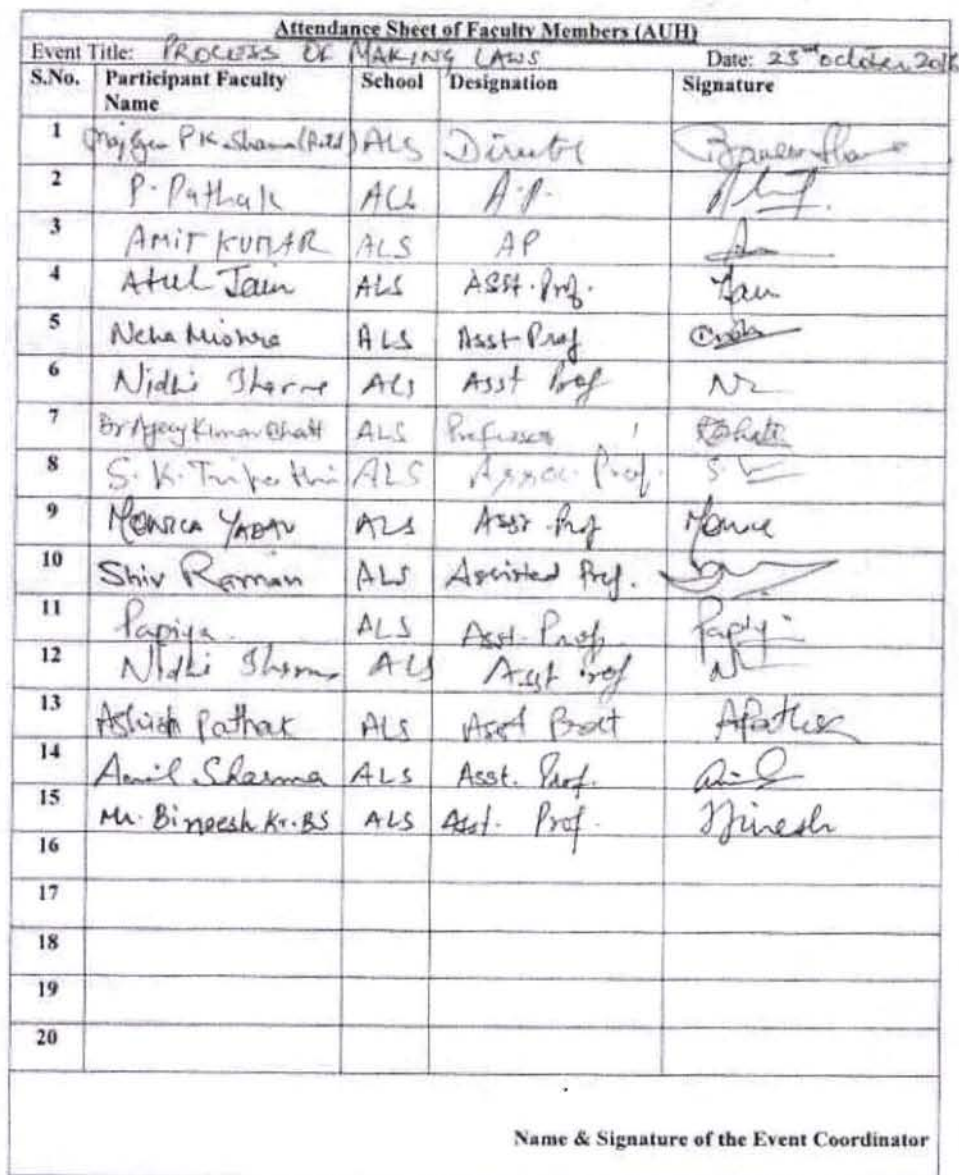 Attendance Sheet of Faculty Members (AUH)
Event Title: PROCESS OF MAKING LAWS Date: october
S.No. Participant Faculty Name School Designation Signature
1 P K Sharma (Retd) ALS Director
2 P. Pathak ALS A.P.
3 AMIT KUMAR ALS AP
4 Atul Jain ALS Asst. Prof. Jain
5 Neha Mishra ALS Asst Prof
6 Nidhi Sharma ALS Asst Prof
7 Dr Ajay Kumar Bhatt ALS Professor
8 S. K. Tripathi ALS Assoc. Prof.
9 MONICA YADAV ALS Asst Prof
10 Shiv Raman ALS Prof.
11 Papiya ALS Asst. Prof.
12 Nidhi Sharma ALS Asst Prof
13 Ashish Pathak ALS Asst
14 Anil Sharma ALS Asst. Prof.
15 Mr. Bineesh Kr. BS ALS Asst. Prof.
16
17
18
19
20
Name & Signature of the Event Coordinator